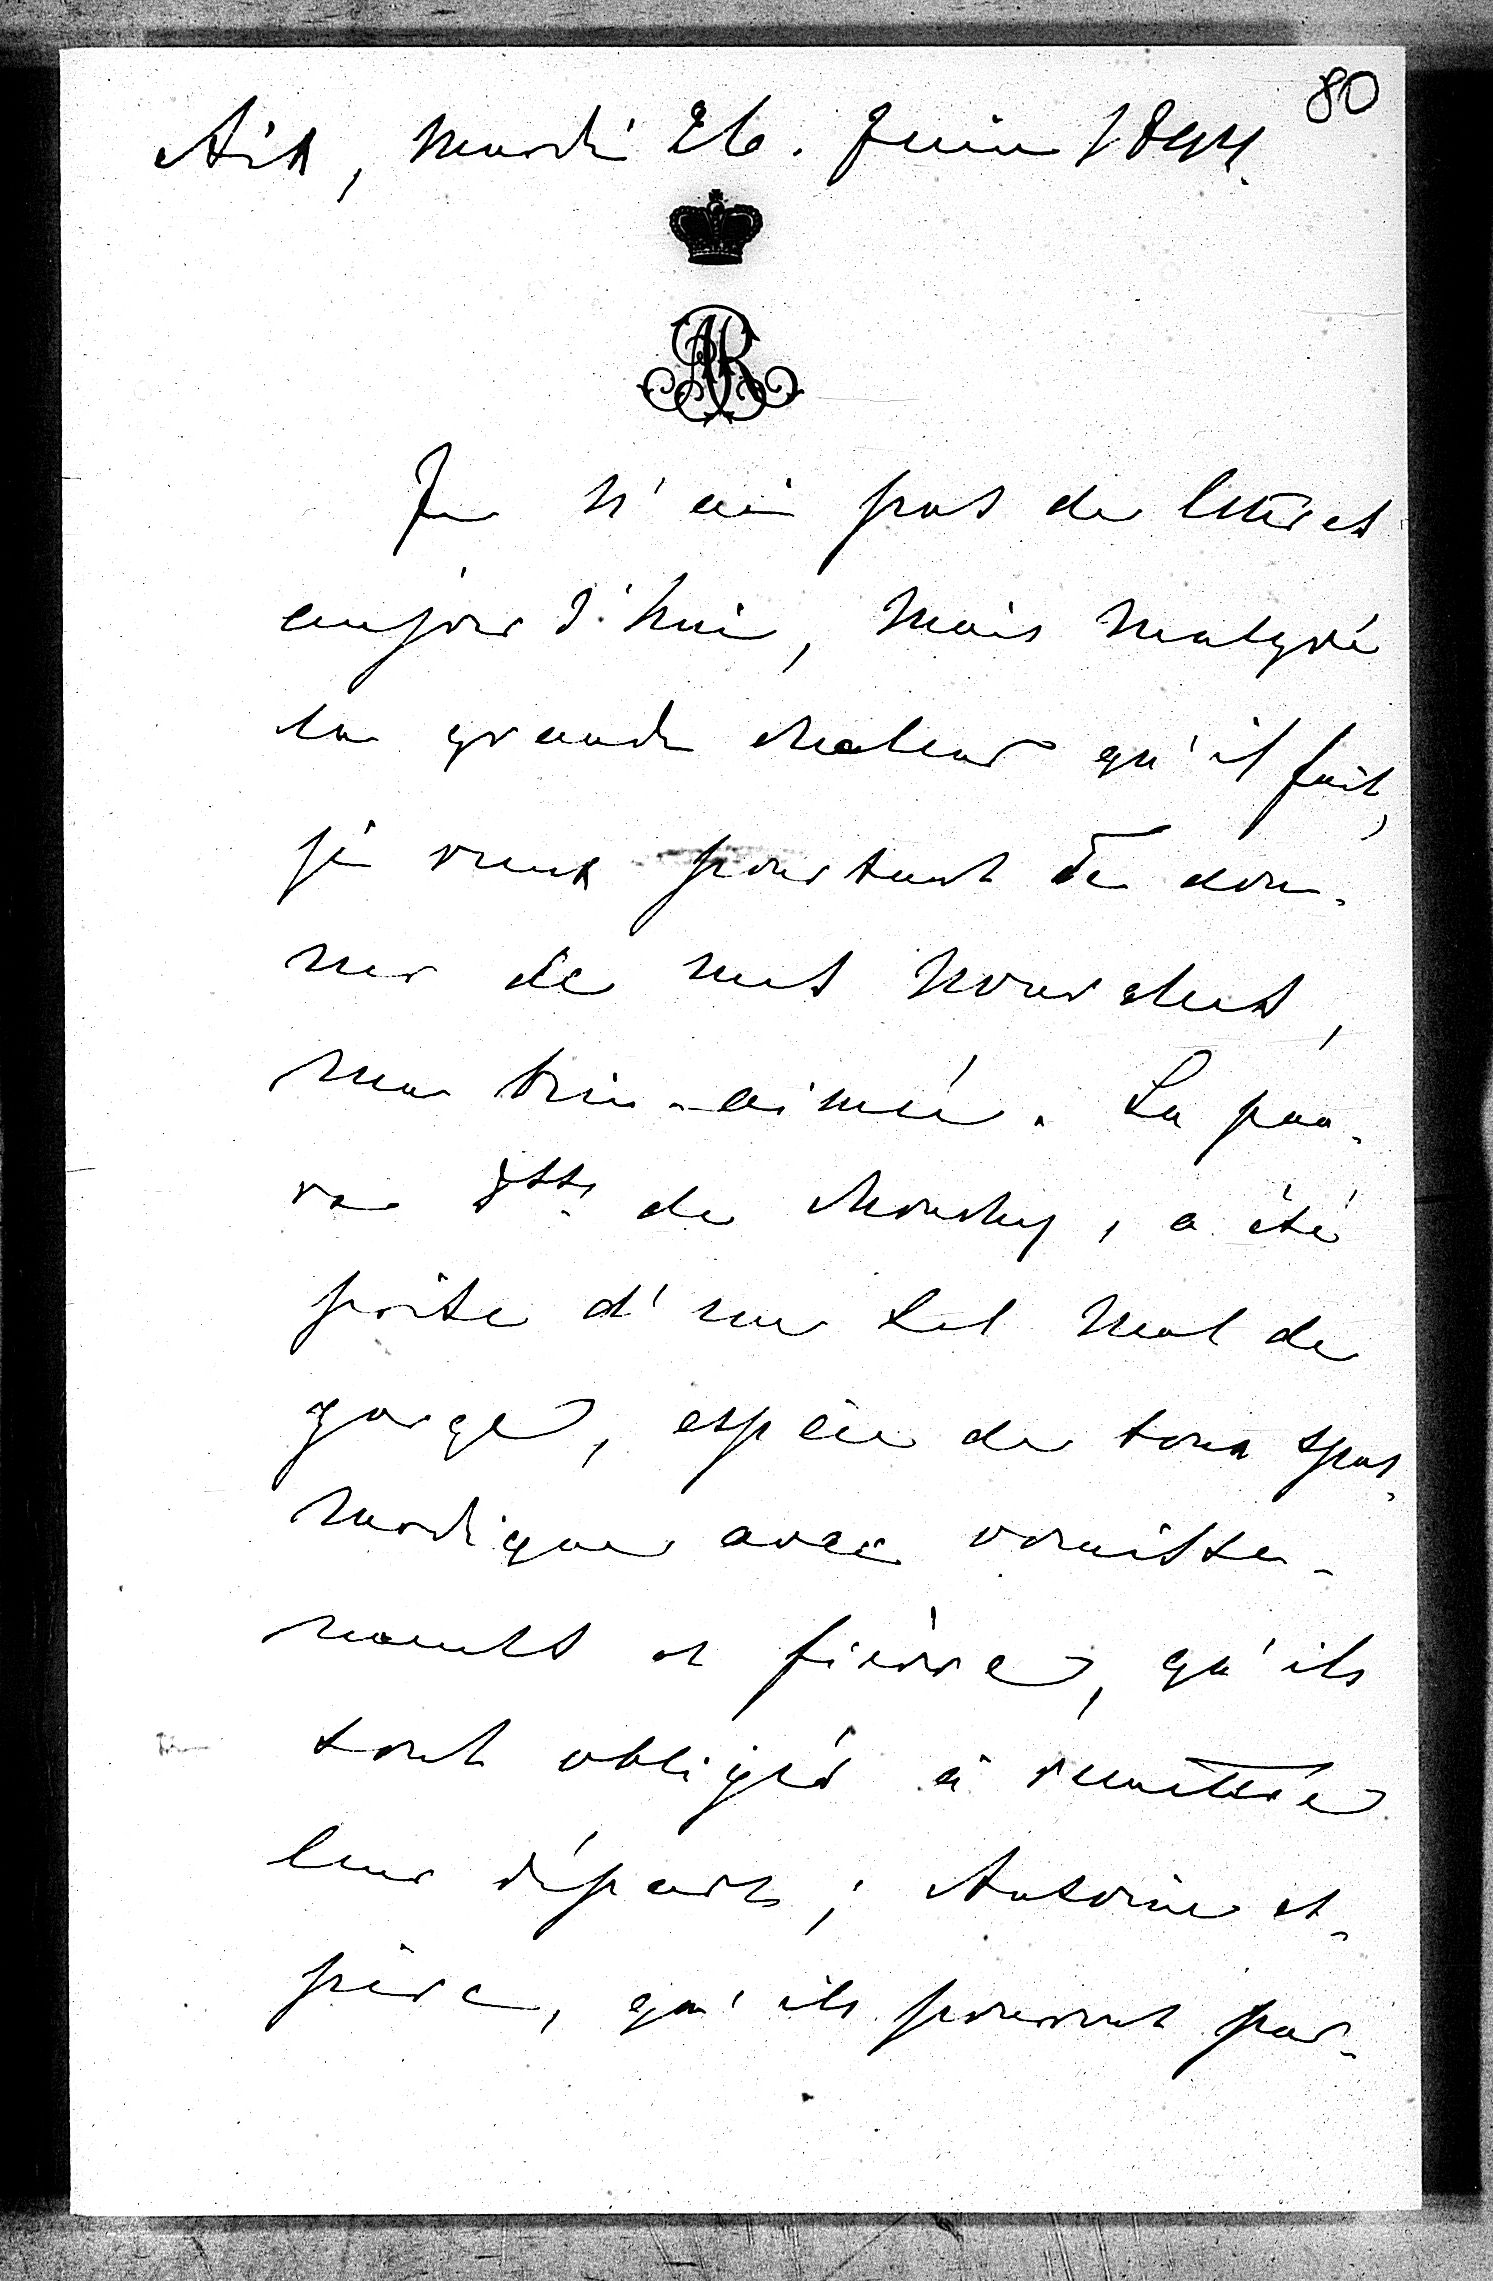 80
Aix, mardi 26. Juin 1894.
AR
Je n'ai pas de lettres
aujourd'hui, mais malgré
la grande chaleur qu'il fait,
je veux pourtant Te don-
ner de mes nouvelles,
ma bien-aimée. La pau-
vre Dsse de Mouchy, a été
prise d'un tel mal de
gorge, espèce de toux spas-
modique avec vomisse-
ments et fièvre, qu'ils
sont obligés à remettre
leur départ; Antoine es-
père, qu'ils pourront par-